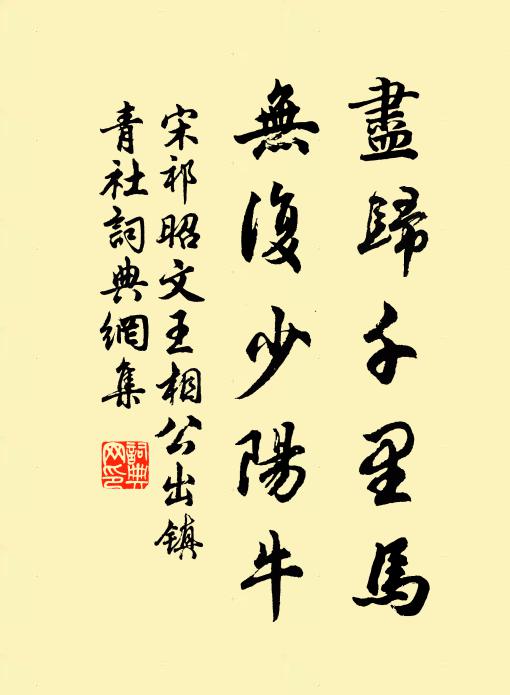 盡歸千里馬
無復少陽牛
宋祁昭文王相公出鎮
青社詞典網集
詞典
网印